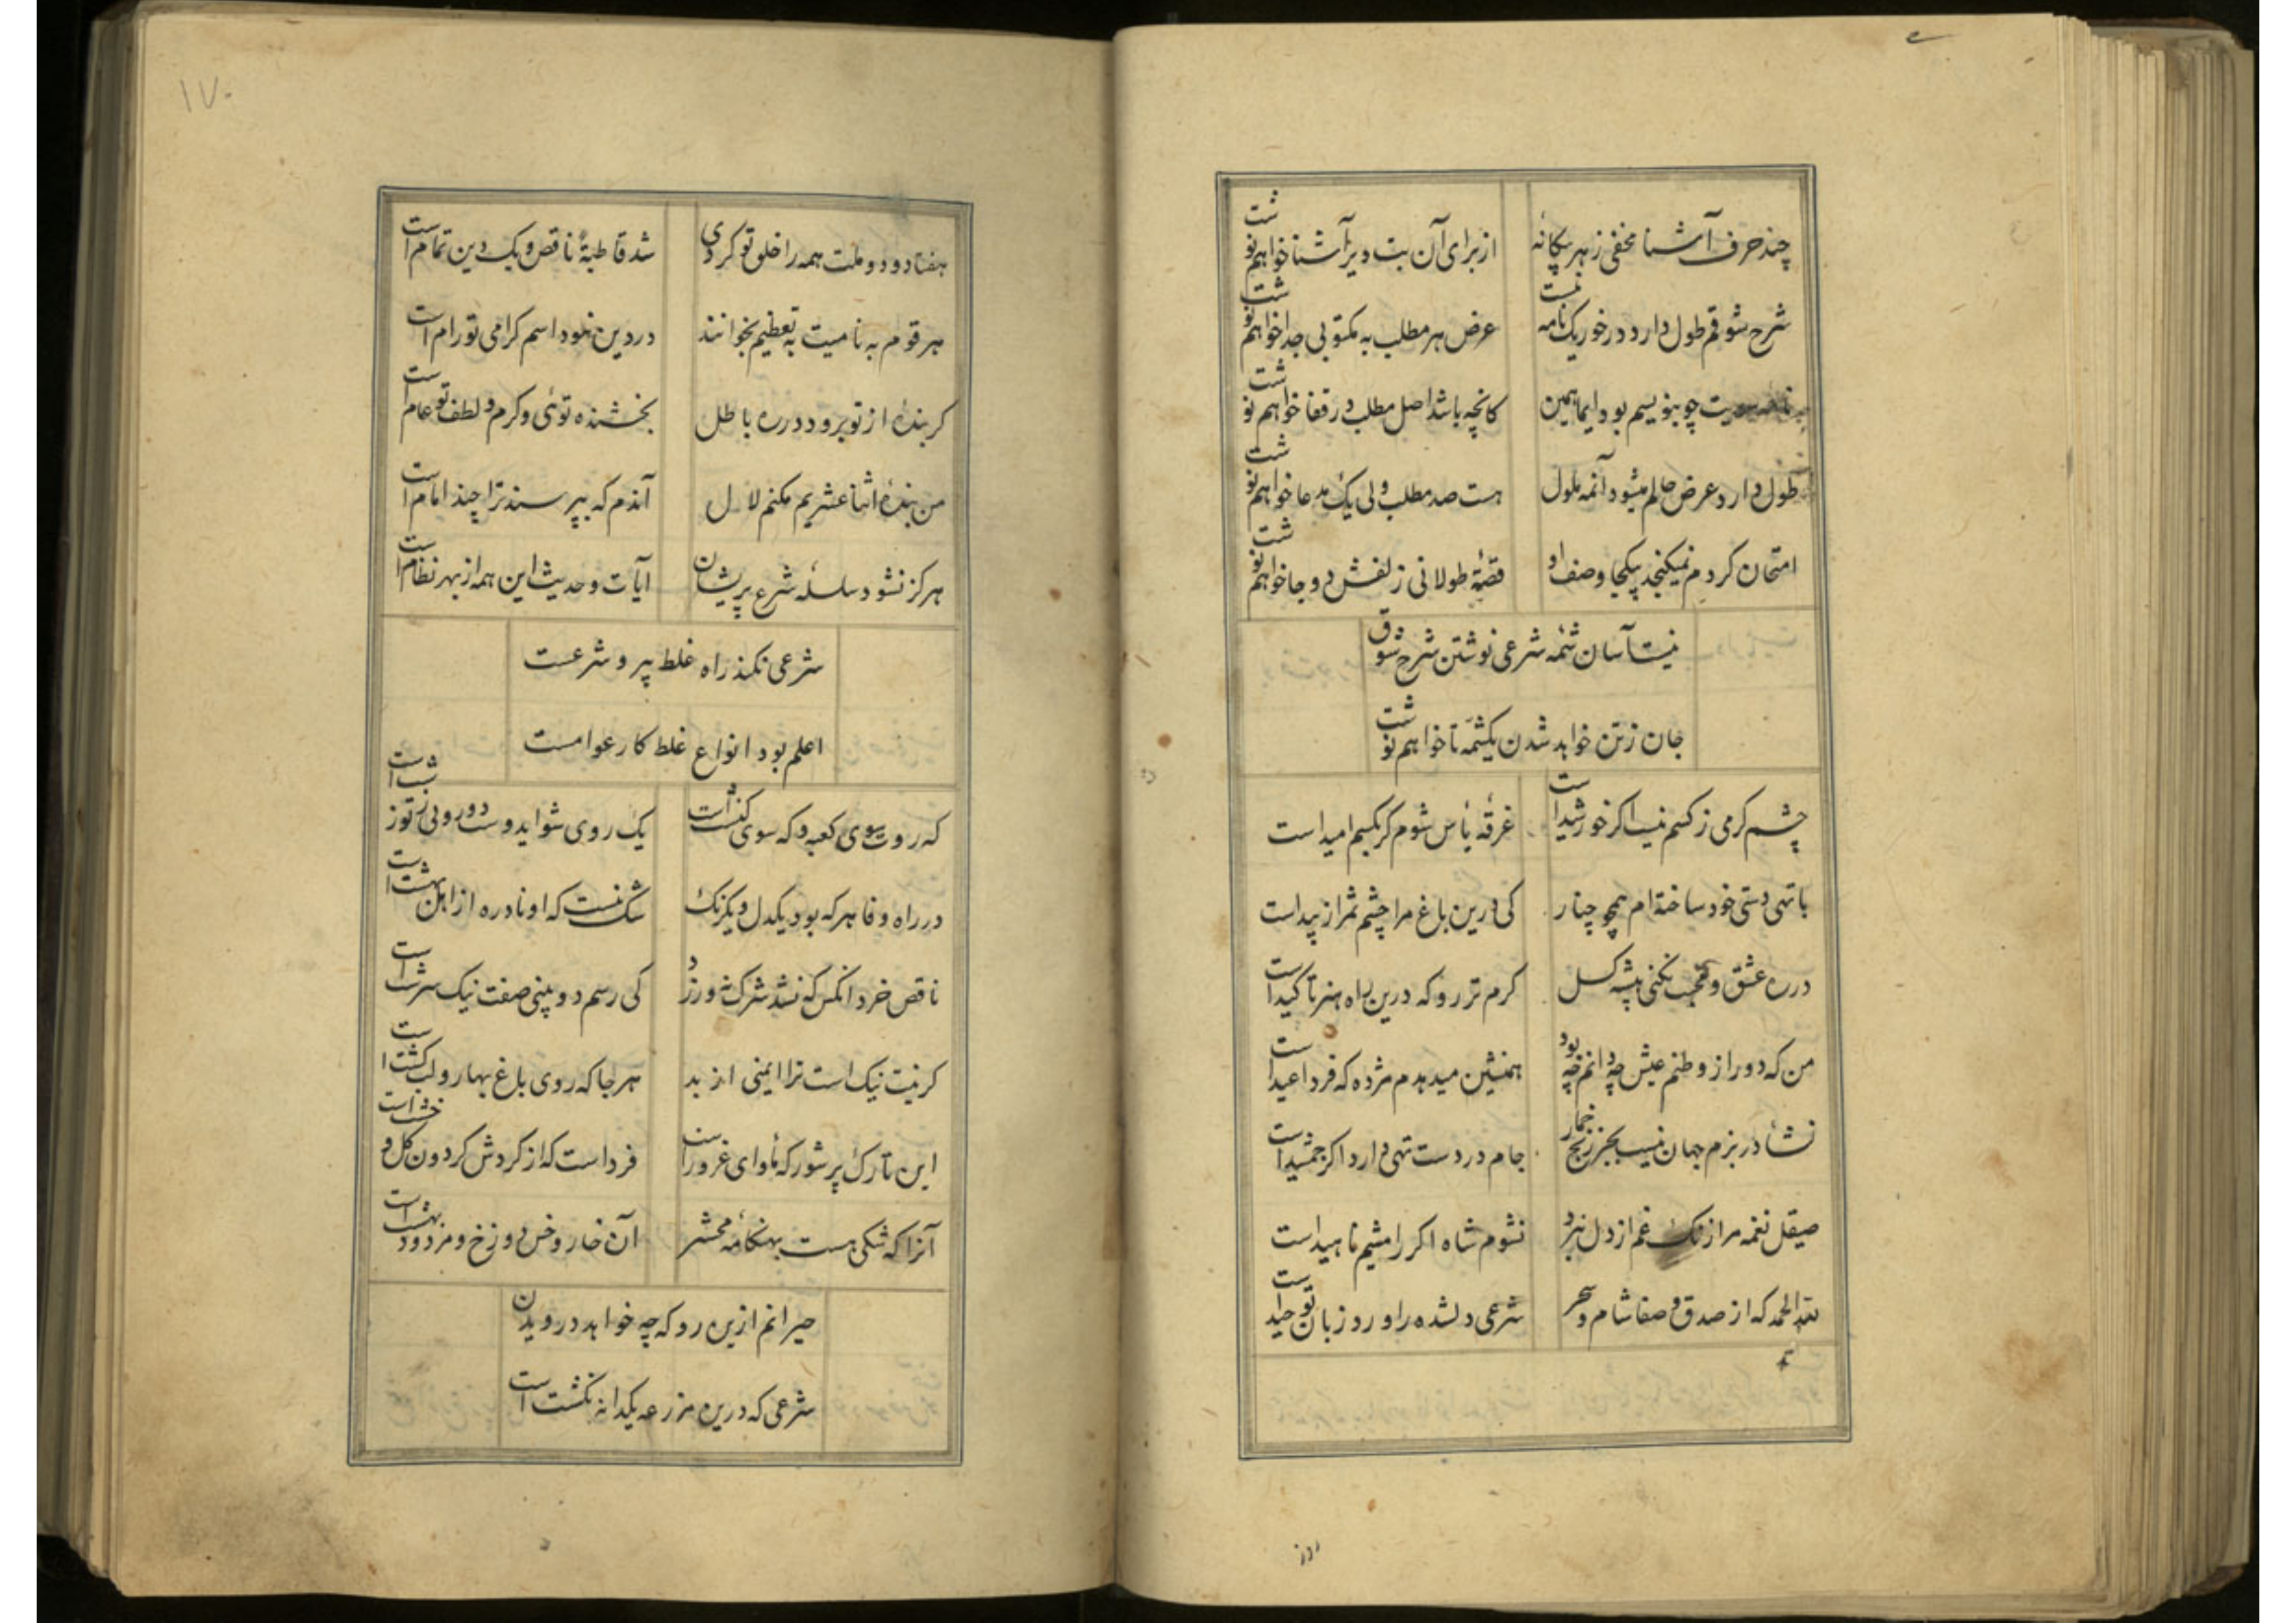 چند حرف آشنا مخفی ز هر بیکانهٔ از برای آن بت دیر آشنا خواهم نوشت
شرح شوقم طول دارد در خور یک نامه نیست عرض هر مطلب به مکتوبی جدا خواهم نوشت
چو بنویسم بود ایما همین کانچه باشد اصل مطلب در قفا خواهم نوشت
طول دارد عرض حالم میشود آنمه ملول هست صد مطلب ولی یک مدعا خواهم نوشت
امتحان کردم نمیکنجد بیکجا وصف او قصهٔ طولانی زلفش دو جا خواهم نوشت
نیست آسان شمه شرعی نوشتن شرح شوق
جان ز تن خواهد شدن یکشمه تا خواهم نوشت
چشم کرمی ز کسم نیست اکر خورشید است غرقه یأس شوم کر بکسم امید است
با تهی دستی خود ساخته‌ام همچو چنار کی درین باغ مرا چشم ثمر از بید است
در ره عشق و محبت نکنی پیشه کسل کرم‌تر رو که درین راه هنر تاکید است
من که دور از وطنم عیش چه دانم چه بود همنشین میدهدم مژده که فردا عید است
نشأ در بزم جهان نیست بجز رنج خمار جام در دست تهی دارد اکر جمشید است
صیقل نغمه مرا زنک غم از دل نبرد نشوم شاد اکر رامشیم ناهید است
لله الحمد که از صدق و صفا شام و سحر شرعی دلشده را ورد زبان توحید است
۱۷۰
هفتاد و دو ملت همه را خلق تو کردی شد قاطبهٔ ناقص و یک دین تمام است
هر قوم به نامیت به تعظیم بخوانند در دین نمود اسم کرامی تو رام است
کر بندهٔ از تو برود در ره باطل بخشنده توئی و کرم و لطف تو عام است
من بندهٔ اثنا عشریم مکنم لال آندم که بپرسند ترا چند امام است
هرکز نشود سلسلهٔ شرع پریشان آیات و حدیث این همه از بهر نظام است
شرعی نکند راه غلط پیرو شرعست
اعلم بود انواع غلط کار عوامست
که روت سوی کعبه و که سوی کنشت است یک روی شو ایدوست دورویی ز تو زشت است
در راه وفا هر که بود یکدل و یکرنک شک نیست که او نادره از اهل بهشت است
ناقص خرد آنکس که نشد شرک نورزد کی رسم دو بینی صفت نیک سرشت است
کر نیت نیک است ترا ایمنی از بد هر جا که روی باغ بهار و لب کشت است
این تارک پر شور که مأوای غرور است فرداست که از کردش کردون کل و خشت است
آنرا که شکی هست بهنکامهٔ محشر آن خار و خس دوزخ و مردود بهشت است
حیرانم ازین رو که چه خواهد درویدن
شرعی که درین مزرعه یکدانه نکشت است